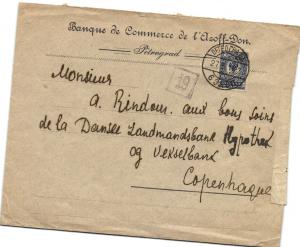 Banque de Commerce de l'Azoff-Don.
Pétrograd
19
Monsieur
A. Rindom. aux bons soins
de la Danske Landmandsbank Hypothek
og Vekselbank
Copenhague